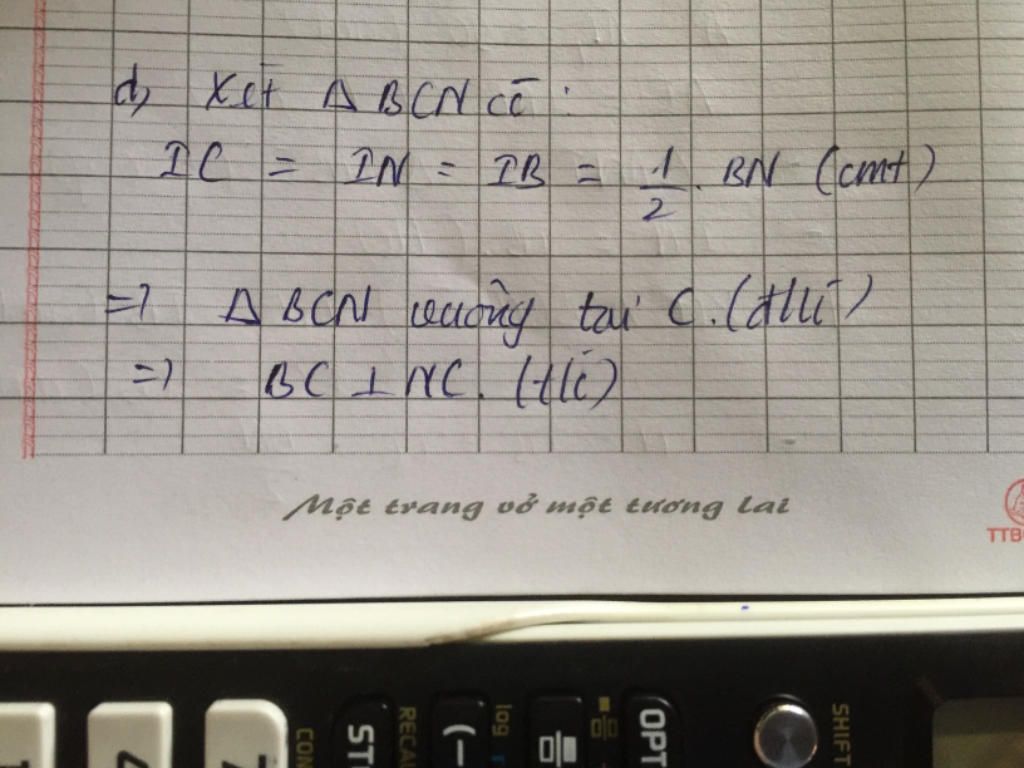 d, Xét Δ BCN có :
IC = IN = IB = 1/2 . BN (cmt)
=> Δ BCN vuông tại C. (đlí)
=> BC ⊥ NC. (tlí)
Một trang vở một tương lai
TTB
CON
RECA
log
SHIFT
4
7
ST
(−
OPT